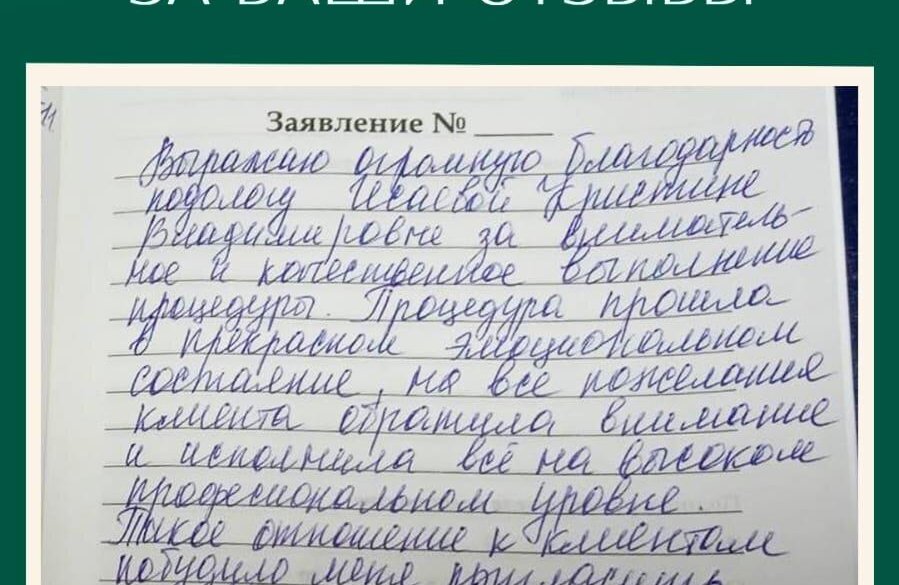 ЗА ВАШИ ОТЗЫВЫ
11.
Заявление № ____
Выражаю огромную благодарность
подологу Исаевой Кристине
Владимировне за вниматель-
ное и качественное выполнение
процедуры. Процедура прошла
в прекрасном эмоциональном
состоянии, на все пожелания
клиента обратила внимание
и исполнила всё на высоком
професиональном уровне.
Такое отношение к клиентам
побудило меня пригласить